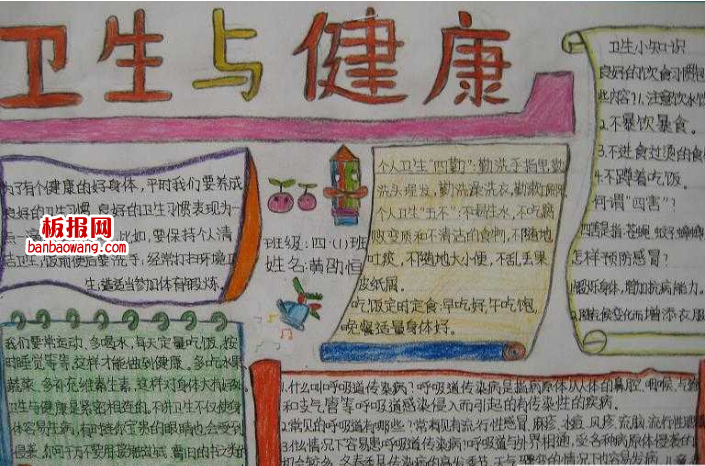 卫生与健康
为了有个健康的好身体，平时我们要养成
良好的卫生习惯。良好的卫生习惯表现为一
比如，要保持个人清
洁卫生，饭前便后要洗手，经常打扫环境卫
生，适当参加体育锻炼。
板报网
banbaowang.com
班级：四·(1)班
姓名：黄劭恒
个人卫生"四勤"：勤洗手指甲,勤
洗头理发，勤洗澡洗衣，勤漱
个人卫生"五不"：不喝生水，不吃腐
败变质和不清洁的食物，不随地
吐痰，不随地大小便，不乱丢果
皮纸屑。
吃饭定时定食：早吃好，午吃饱，
晚餐适量身体好。
卫生小知识
良好的饮食习惯包
些内容？1.注意饮水
2.不暴饮暴食。
3.不进食过烫的食
4.不蹲着吃饭。
何谓"四害"？
四害是指：苍蝇、蚊子、蟑螂
怎样预防感冒？
1.锻炼身体，增加抗病能力。
2.随气候变化而增添衣服
我们要常运动，多喝水，每天定量吃饭，按
时睡觉等等，这样才能做到健康。多吃水果
蔬菜，多补充维生素，这样对身体大有
卫生与健康是紧密相连的，不讲卫生不仅使身
体容易生病，有时连你宝贵的眼睛也会受到
侵袭，你可千万不要用
1.什么叫呼吸道传染病？呼吸道传染病是指病原体从人体的鼻腔、咽喉、气
和支气管等呼吸道感染侵入而引起的有传染性的疾病。
2.常见的呼吸道有哪些？常见有流行性感冒、麻疹、水痘、风疹、流脑、流行性腮
3.什么情况下容易患呼吸道传染病？呼吸道与外界相通，受各种病原体侵袭的